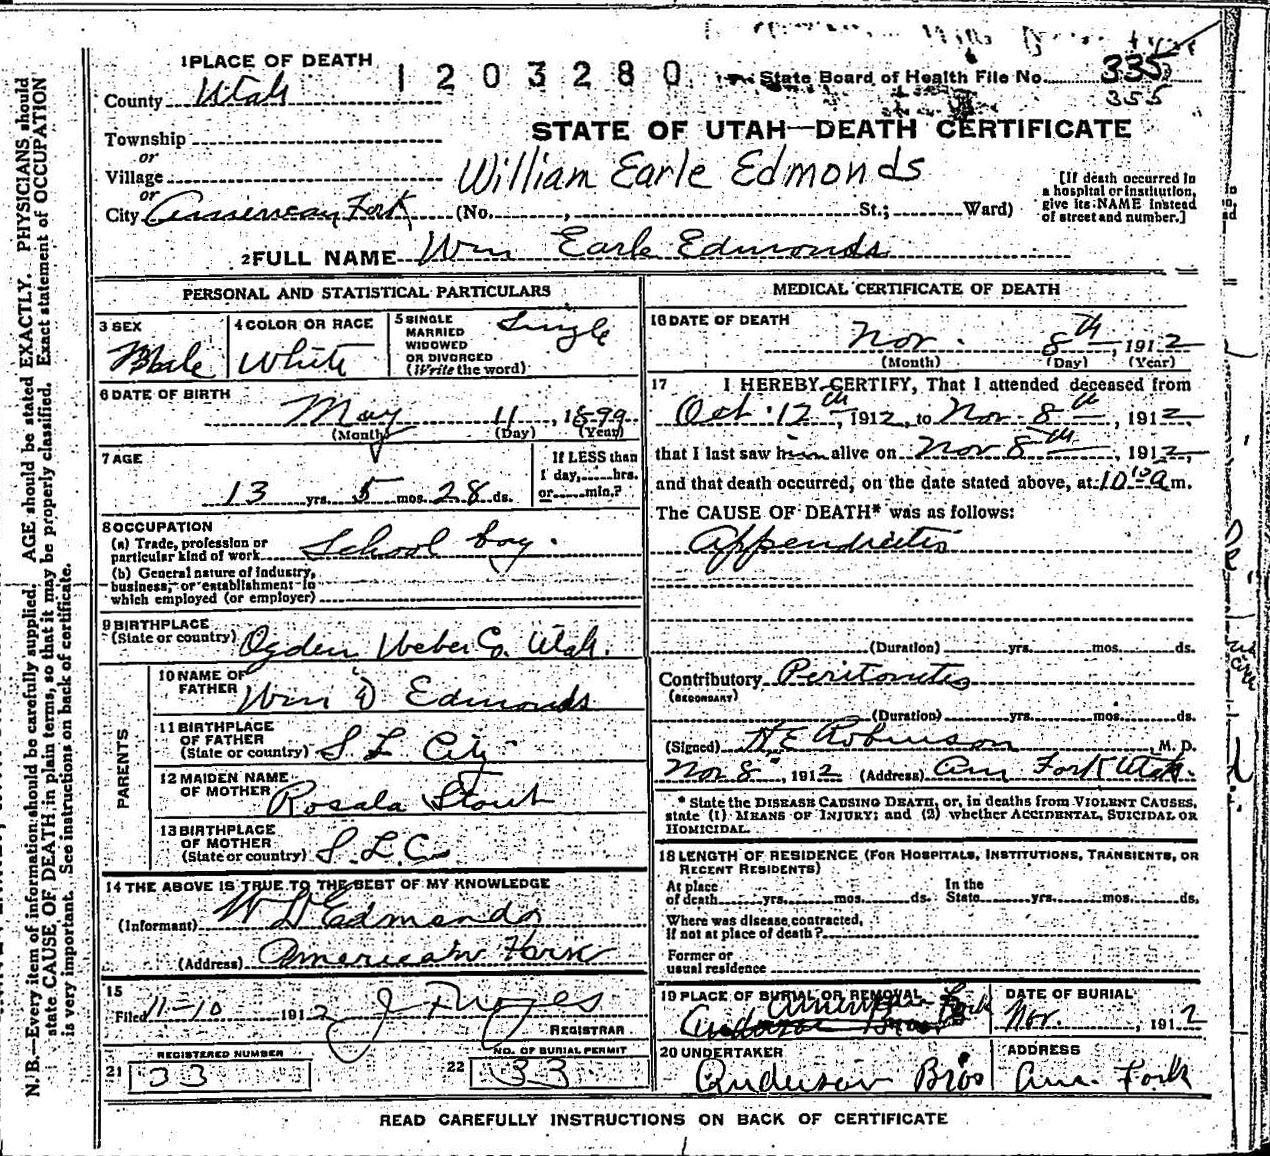 1 PLACE OF DEATH
1203280
State Board of Health File No. 335
355
County Utah
STATE OF UTAH—DEATH CERTIFICATE
Township
or
Village
William Earle Edmonds
[If death occurred in
a hospital or institution,
give its NAME instead
of street and number.]
or
City American Fork (No. , St.; Ward)
2 FULL NAME Wm Earle Edmonds
PERSONAL AND STATISTICAL PARTICULARS
3 SEX
Male
4 COLOR OR RACE
White
5 SINGLE
MARRIED
WIDOWED
OR DIVORCED
(Write the word)
Single
6 DATE OF BIRTH
May 11, 1899
(Month) (Day) (Year)
7 AGE
13 yrs. 5 mos. 28 ds.
If LESS than
1 day, hrs.
or min.?
8 OCCUPATION
(a) Trade, profession or
particular kind of work School boy.
(b) General nature of industry,
business, or establishment in
which employed (or employer)
9 BIRTHPLACE
(State or country) Ogden Weber Co. Utah.
PARENTS
10 NAME OF
FATHER Wm D Edmonds
11 BIRTHPLACE
OF FATHER
(State or country) S. L. City
12 MAIDEN NAME
OF MOTHER Rosala Stout
13 BIRTHPLACE
OF MOTHER
(State or country) S. L. C.
14 THE ABOVE IS TRUE TO THE BEST OF MY KNOWLEDGE
(Informant) W D Edmonds
(Address) American Fork
15
Filed 11-10 1912 J F Noyes
REGISTRAR
REGISTERED NUMBER
21 33
NO. OF BURIAL PERMIT
22 33
MEDICAL CERTIFICATE OF DEATH
16 DATE OF DEATH
Nov. 8th, 1912
(Month) (Day) (Year)
17 I HEREBY CERTIFY, That I attended deceased from
Oct. 12th, 1912, to Nov. 8th, 1912,
that I last saw him alive on Nov 8th, 1912,
and that death occurred, on the date stated above, at 10 10 a m.
The CAUSE OF DEATH* was as follows:
Appendicitis
(Duration) yrs. mos. ds.
Contributory Peritonitis
(SECONDARY)
(Duration) yrs. mos. ds.
(Signed) H E Robinson, M. D.
Nov 8, 1912 (Address) Am Fork Utah.
* State the DISEASE CAUSING DEATH, or, in deaths from VIOLENT CAUSES,
state (1) MEANS OF INJURY; and (2) whether ACCIDENTAL, SUICIDAL OR
HOMICIDAL.
18 LENGTH OF RESIDENCE (FOR HOSPITALS, INSTITUTIONS, TRANSIENTS, OR
RECENT RESIDENTS)
At place
of death yrs. mos. ds.
In the
State yrs. mos. ds.
Where was disease contracted,
if not at place of death?
Former or
usual residence
19 PLACE OF BURIAL OR REMOVAL
American Fork
DATE OF BURIAL
Nov. , 1912
20 UNDERTAKER
Anderson Bros
ADDRESS
Am. Fork
READ CAREFULLY INSTRUCTIONS ON BACK OF CERTIFICATE
N. B.—Every item of information should be carefully supplied. AGE should be stated EXACTLY. PHYSICIANS should
state CAUSE OF DEATH in plain terms, so that it may be properly classified. Exact statement of OCCUPATION
is very important. See instructions on back of certificate.